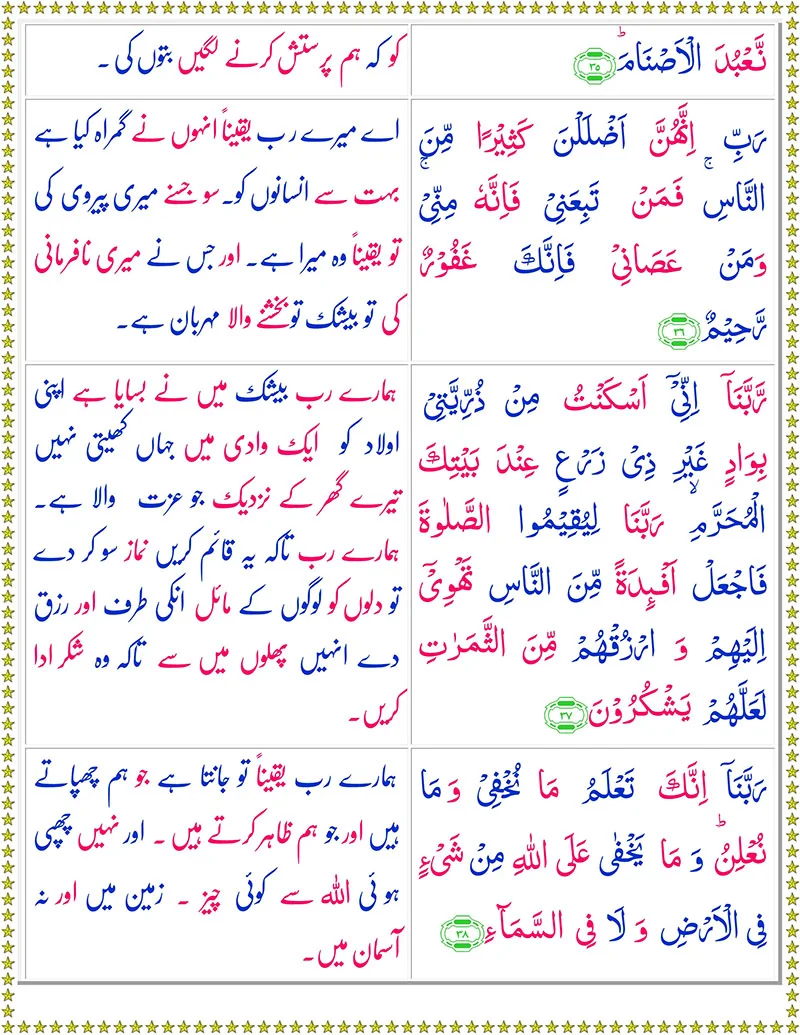 نَّعْبُدَ الْاَصْنَامَؕ ۳۵
کو کہ ہم پرستش کرنے لگیں بتوں کی ۔
رَبِّ اِنَّهُنَّ اَضْلَلْنَ كَثِيْرًا مِّنَ
النَّاسِۚ فَمَنْ تَبِعَنِيْ فَاِنَّهٗ مِنِّيْۚ
وَمَنْ عَصَانِيْ فَاِنَّكَ غَفُوْرٌ
رَّحِيْمٌ ۳۶
اے میرے رب یقیناً انہوں نے گمراہ کیا ہے
بہت سے انسانوں کو۔ سو جسنے میری پیروی کی
تو یقیناً وہ میرا ہے۔ اور جس نے میری نافرمانی
کی تو بیشک تو بخشنے والا مہربان ہے۔
رَبَّنَاۤ اِنِّيْۤ اَسْكَنْتُ مِنْ ذُرِّيَّتِيْ
بِوَادٍ غَيْرِ ذِيْ زَرْعٍ عِنْدَ بَيْتِكَ
الْمُحَرَّمِۙ رَبَّنَا لِيُقِيْمُوا الصَّلٰوةَ
فَاجْعَلْ اَفْـِٕدَةً مِّنَ النَّاسِ تَهْوِيْۤ
اِلَيْهِمْ وَ ارْزُقْهُمْ مِّنَ الثَّمَرٰتِ
لَعَلَّهُمْ يَشْكُرُوْنَ ۳۷
ہمارے رب بیشک میں نے بسایا ہے اپنی
اولاد کو ایک وادی میں جہاں کھیتی نہیں
تیرے گھر کے نزدیک جو عزت والا ہے۔
ہمارے رب تاکہ یہ قائم کریں نماز سو کر دے
تو دلوں کو لوگوں کے مائل انکی طرف اور رزق
دے انہیں پھلوں میں سے تاکہ وہ شکر ادا
کریں۔
رَبَّنَاۤ اِنَّكَ تَعْلَمُ مَا نُخْفِيْ وَ مَا
نُعْلِنُؕ وَ مَا يَخْفٰى عَلَى اللّٰهِ مِنْ شَيْءٍ
فِي الْاَرْضِ وَ لَا فِي السَّمَآءِ ۳۸
ہمارے رب یقیناً تو جانتا ہے جو ہم چھپاتے
ہیں اور جو ہم ظاہر کرتے ہیں ۔ اور نہیں چھپی
ہوئی اللہ سے کوئی چیز ۔ زمین میں اور نہ
آسمان میں۔